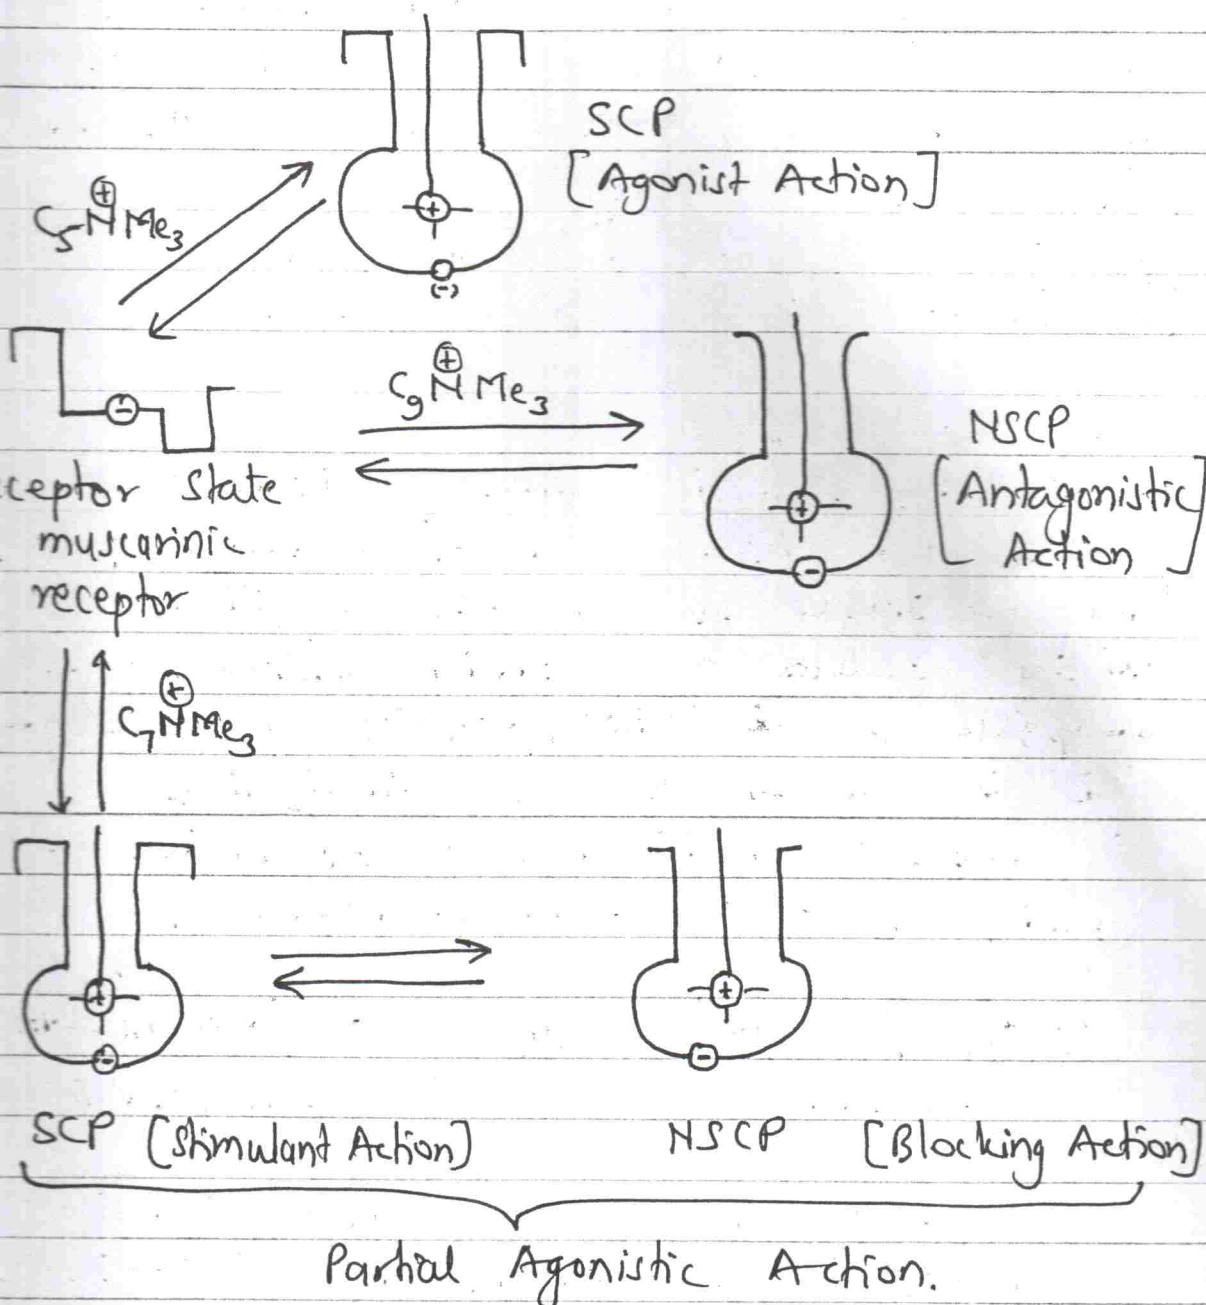 SCP
[Agonist Action]
C5N⊕Me3
⊕
(-)
C9N⊕Me3
⊖
⊕
⊖
NSCP
[Antagonistic
Action]
ceptor State
muscarinic
receptor
C7N⊕Me3
⊕
⊖
⊕
⊖
SCP [Stimulant Action]
NSCP [Blocking Action]
Partial Agonistic Action.